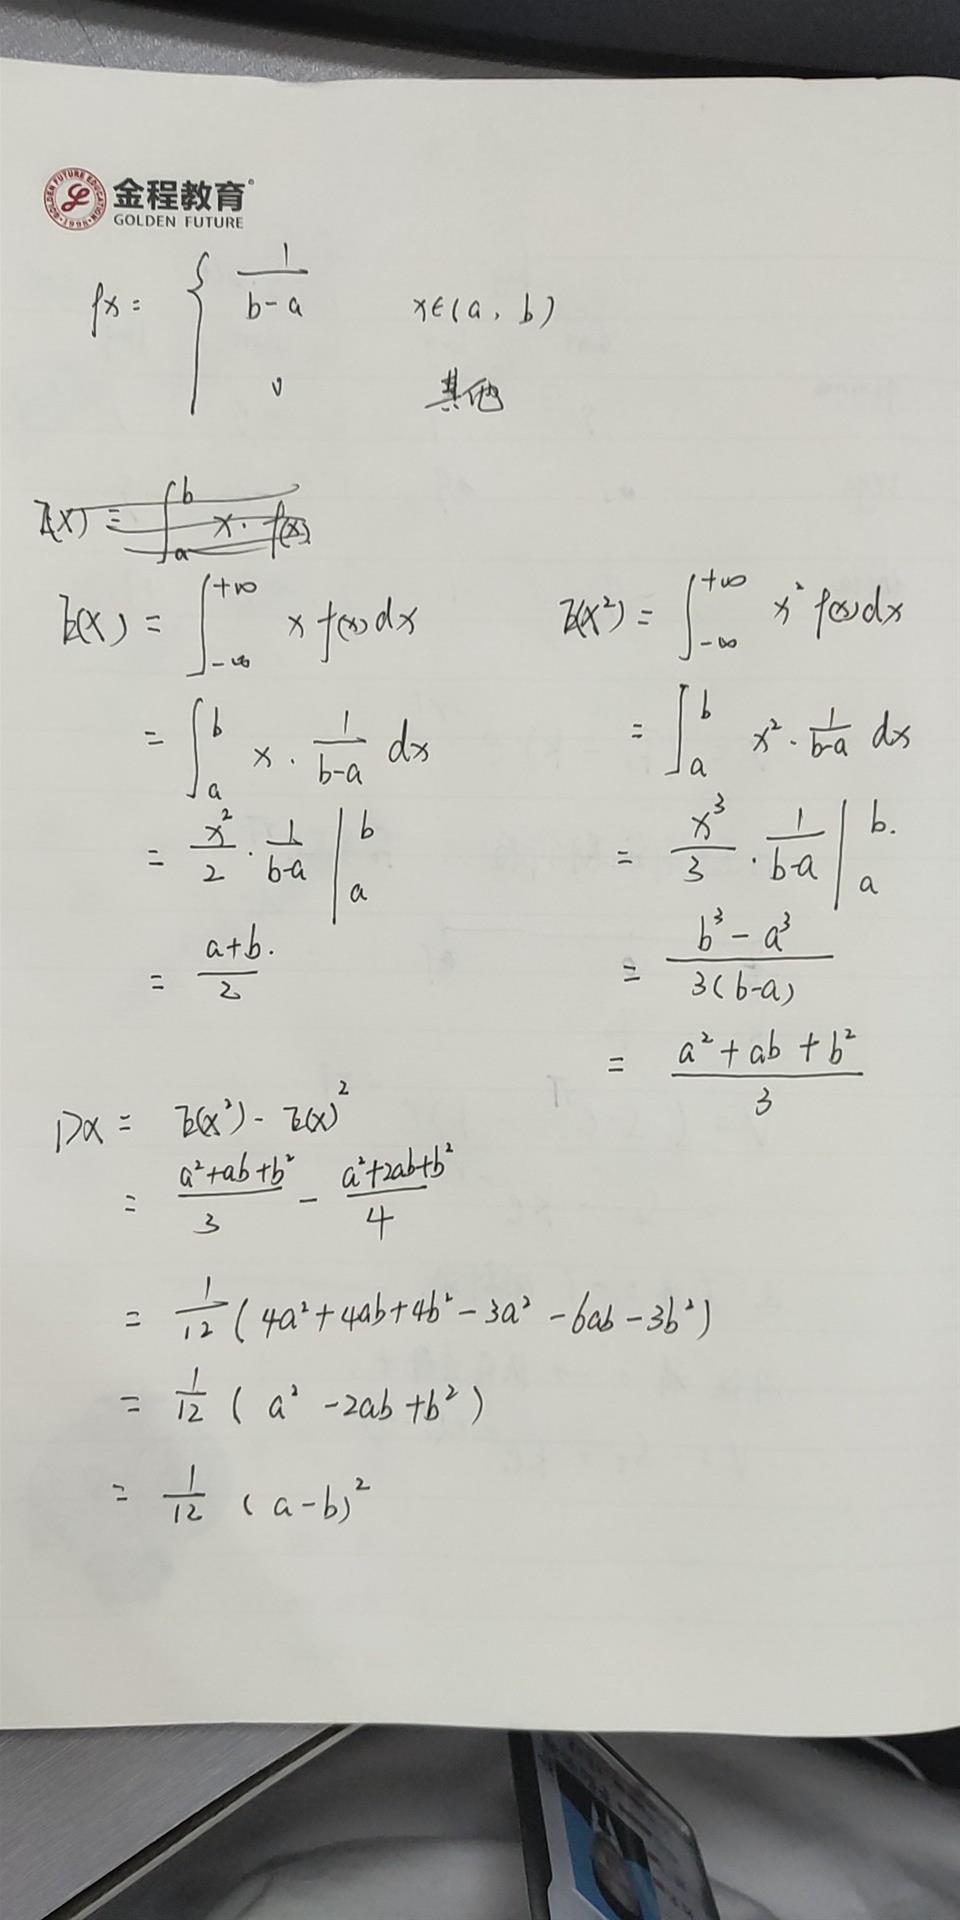 金程教育
GOLDEN FUTURE
GOLDEN FUTURE EDUCATION ·1998·
fx = { 1/(b-a) x∈(a, b)
0 其他
E(X) = ∫_a^b x · f(x)
E(X) = ∫_{-∞}^{+∞} x f(x) dx
= ∫_a^b x · 1/(b-a) dx
= x²/2 · 1/(b-a) |_a^b
= (a+b)/2
E(X²) = ∫_{-∞}^{+∞} x² f(x) dx
= ∫_a^b x² · 1/(b-a) dx
= x³/3 · 1/(b-a) |_a^b
= (b³ - a³)/(3(b-a))
= (a² + ab + b²)/3
DX = E(X²) - E(X)²
= (a²+ab+b²)/3 - (a²+2ab+b²)/4
= 1/12 (4a²+4ab+4b²-3a²-6ab-3b²)
= 1/12 (a² -2ab +b²)
= 1/12 (a-b)²